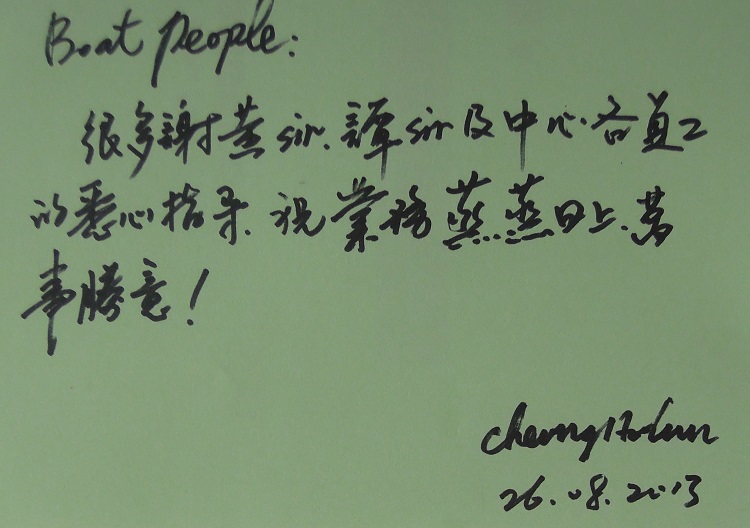 Boat People:
很多謝黃 sir. 譚 sir 及中心各員工
的悉心指导. 祝業務蒸蒸日上. 萬
事勝意!
26.08.2013